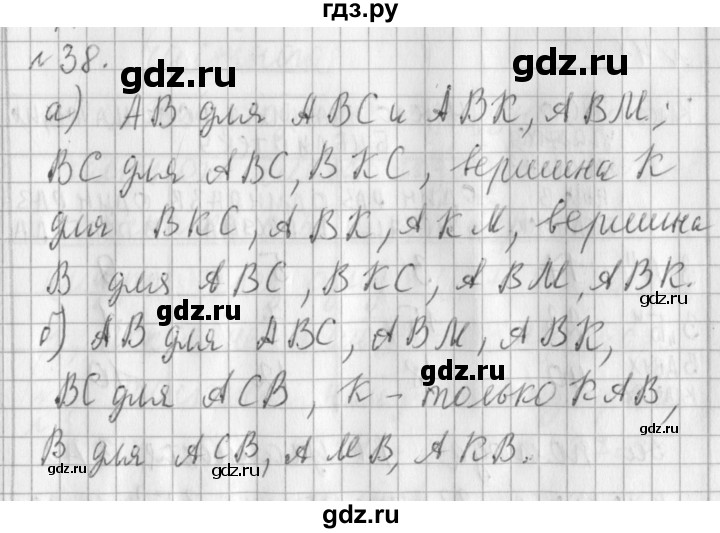 гдз.ру
№38.
gdz.ru
gdz.ru
а) АВ для АВС и АВК, АВМ;
ВС для АВС, ВКС, вершина К
для ВКС, АВК, АКМ, вершина
В для АВС, ВКС, АВМ, АВК.
gdz.ru
gdz.ru
б) АВ для АВС, АВМ, АВК,
gdz.ru
ВС для АСВ, К - только КАВ,
В для АСВ, АМВ, АКВ.
gdz.ru
gdz.ru
gdz.ru